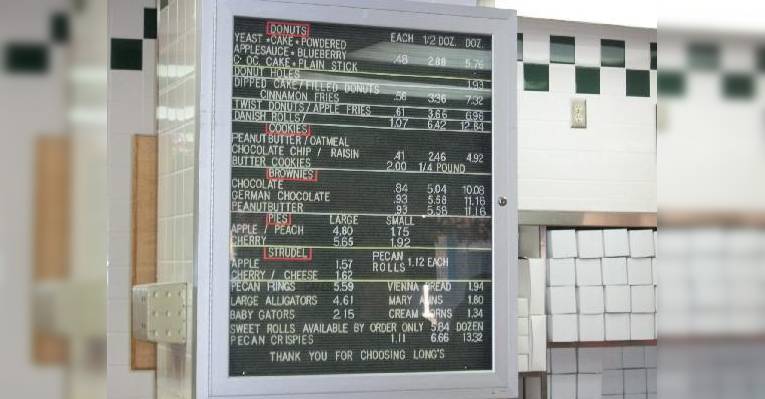 DONUTS
YEAST • CAKE • POWDERED EACH 1/2 DOZ. DOZ.
APPLESAUCE • BLUEBERRY
CHOC. CAKE • PLAIN STICK .48 2.88 5.76
DONUT HOLES 1.93
DIPPED CAKE/FILLED DONUTS
CINNAMON FRIES .56 3.36 7.32
TWIST DONUTS/APPLE FRIES .61 3.66 6.96
DANISH ROLLS/ 1.07 6.42 12.84
COOKIES
PEANUTBUTTER / OATMEAL
CHOCOLATE CHIP / RAISIN .41 2.46 4.92
BUTTER COOKIES 2.00 1/4 POUND
BROWNIES
CHOCOLATE .84 5.04 10.08
GERMAN CHOCOLATE .93 5.58 11.16
PEANUTBUTTER .93 5.58 11.16
PIES LARGE SMALL
APPLE / PEACH 4.80 1.75
CHERRY 5.65 1.92
STRUDEL
APPLE 1.57 PECAN ROLLS 1.12 EACH
CHERRY / CHEESE 1.62
PECAN RINGS 5.59 VIENNA BREAD 1.94
LARGE ALLIGATORS 4.61 MARY ANNS 1.80
BABY GATORS 2.15 CREAM HORNS 1.34
SWEET ROLLS AVAILABLE BY ORDER ONLY 5.84 DOZEN
PECAN CRISPIES 1.11 6.66 13.32
THANK YOU FOR CHOOSING LONG'S